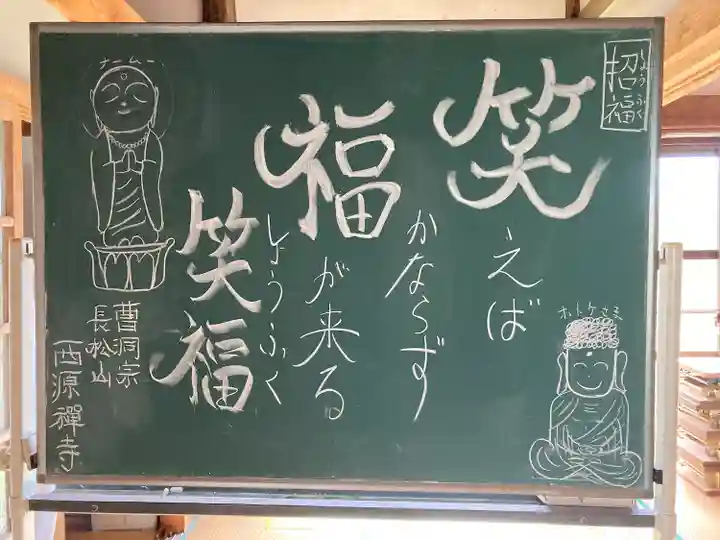 招福
しょうふく
笑えば
かならず
福が来る
笑福
しょうふく
ナームー
ホトケさま
曹洞宗
長松山
西源禪寺